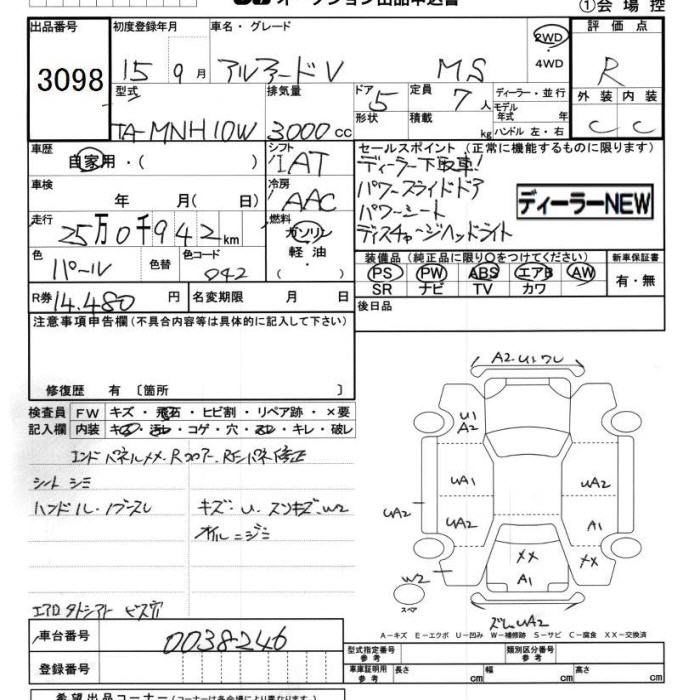 オークション出品申込書 ①会場控
出品番号 初度登録年月 車名・グレード 評価点
3098 15 9月 アルファードV MS 2WD 4WD R
型式 排気量 ドア 5 定員 7人 ディーラー・並行 外装 内装
TA-MNH10W 3000cc 形状 積載 kg モデル年式 年 ハンドル 左・右 C C
車歴 自家用・( ) シフト IAT セールスポイント (正常に機能するものに限ります)
ディーラー下取車!
車検 年 月( 日) 冷房 AAC パワースライドドア
パワーシート ディーラーNEW
走行 25万0千942km 燃料 ガソリン 軽油 ( ) ディスチャージヘッドライト
色 パール 色替 色コード 042 装備品 (純正品に限り○をつけてください) 新車保証書
PS PW ABS エアB AW 有・無
SR ナビ TV カワ
R券 14.480円 名変期限 月 日 後日品
注意事項申告欄(不具合内容等は具体的に記入して下さい)
修復歴 有 〔箇所 〕
検査員 FW キズ・飛石・ヒビ割・リペア跡・×要
記入欄 内装 キズ・汚レ・コゲ・穴・スレ・キレ・破レ
シート シミ
ハンドル・ノブスレ キズ・U・スリキズ・W2
ビス穴
A2・U1ワレ
U1
A2
UA1 UA2
UA2 UA2 A1
XX XX
W2 A1
スペア
UA2
A-キズ E-エクボ U-凹み W-補修跡 S-サビ C-腐食 XX-交換済
車台番号 0038246
型式指定番号 参考 類別区分番号 参考
登録番号 車庫証明 参考 長さ cm 幅 cm 高さ cm
希望出品コーナー(コーナーは各会場により異なります。)